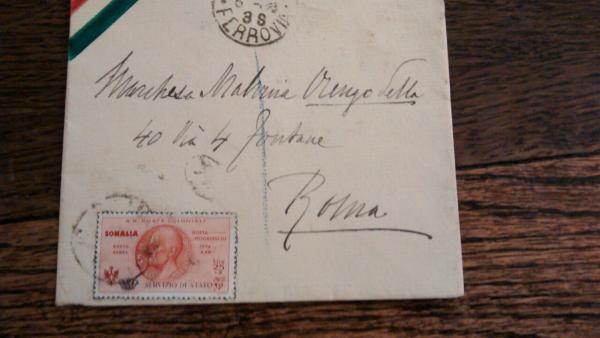 38
FERROVIA
Marchesa Malvina Orengo della
40 Via 4 Fontane
Roma
R.R. POSTE COLONIALI
SOMALIA
ROMA
MOGADISCIO
POSTA
AEREA
SERVIZIO DI STATO